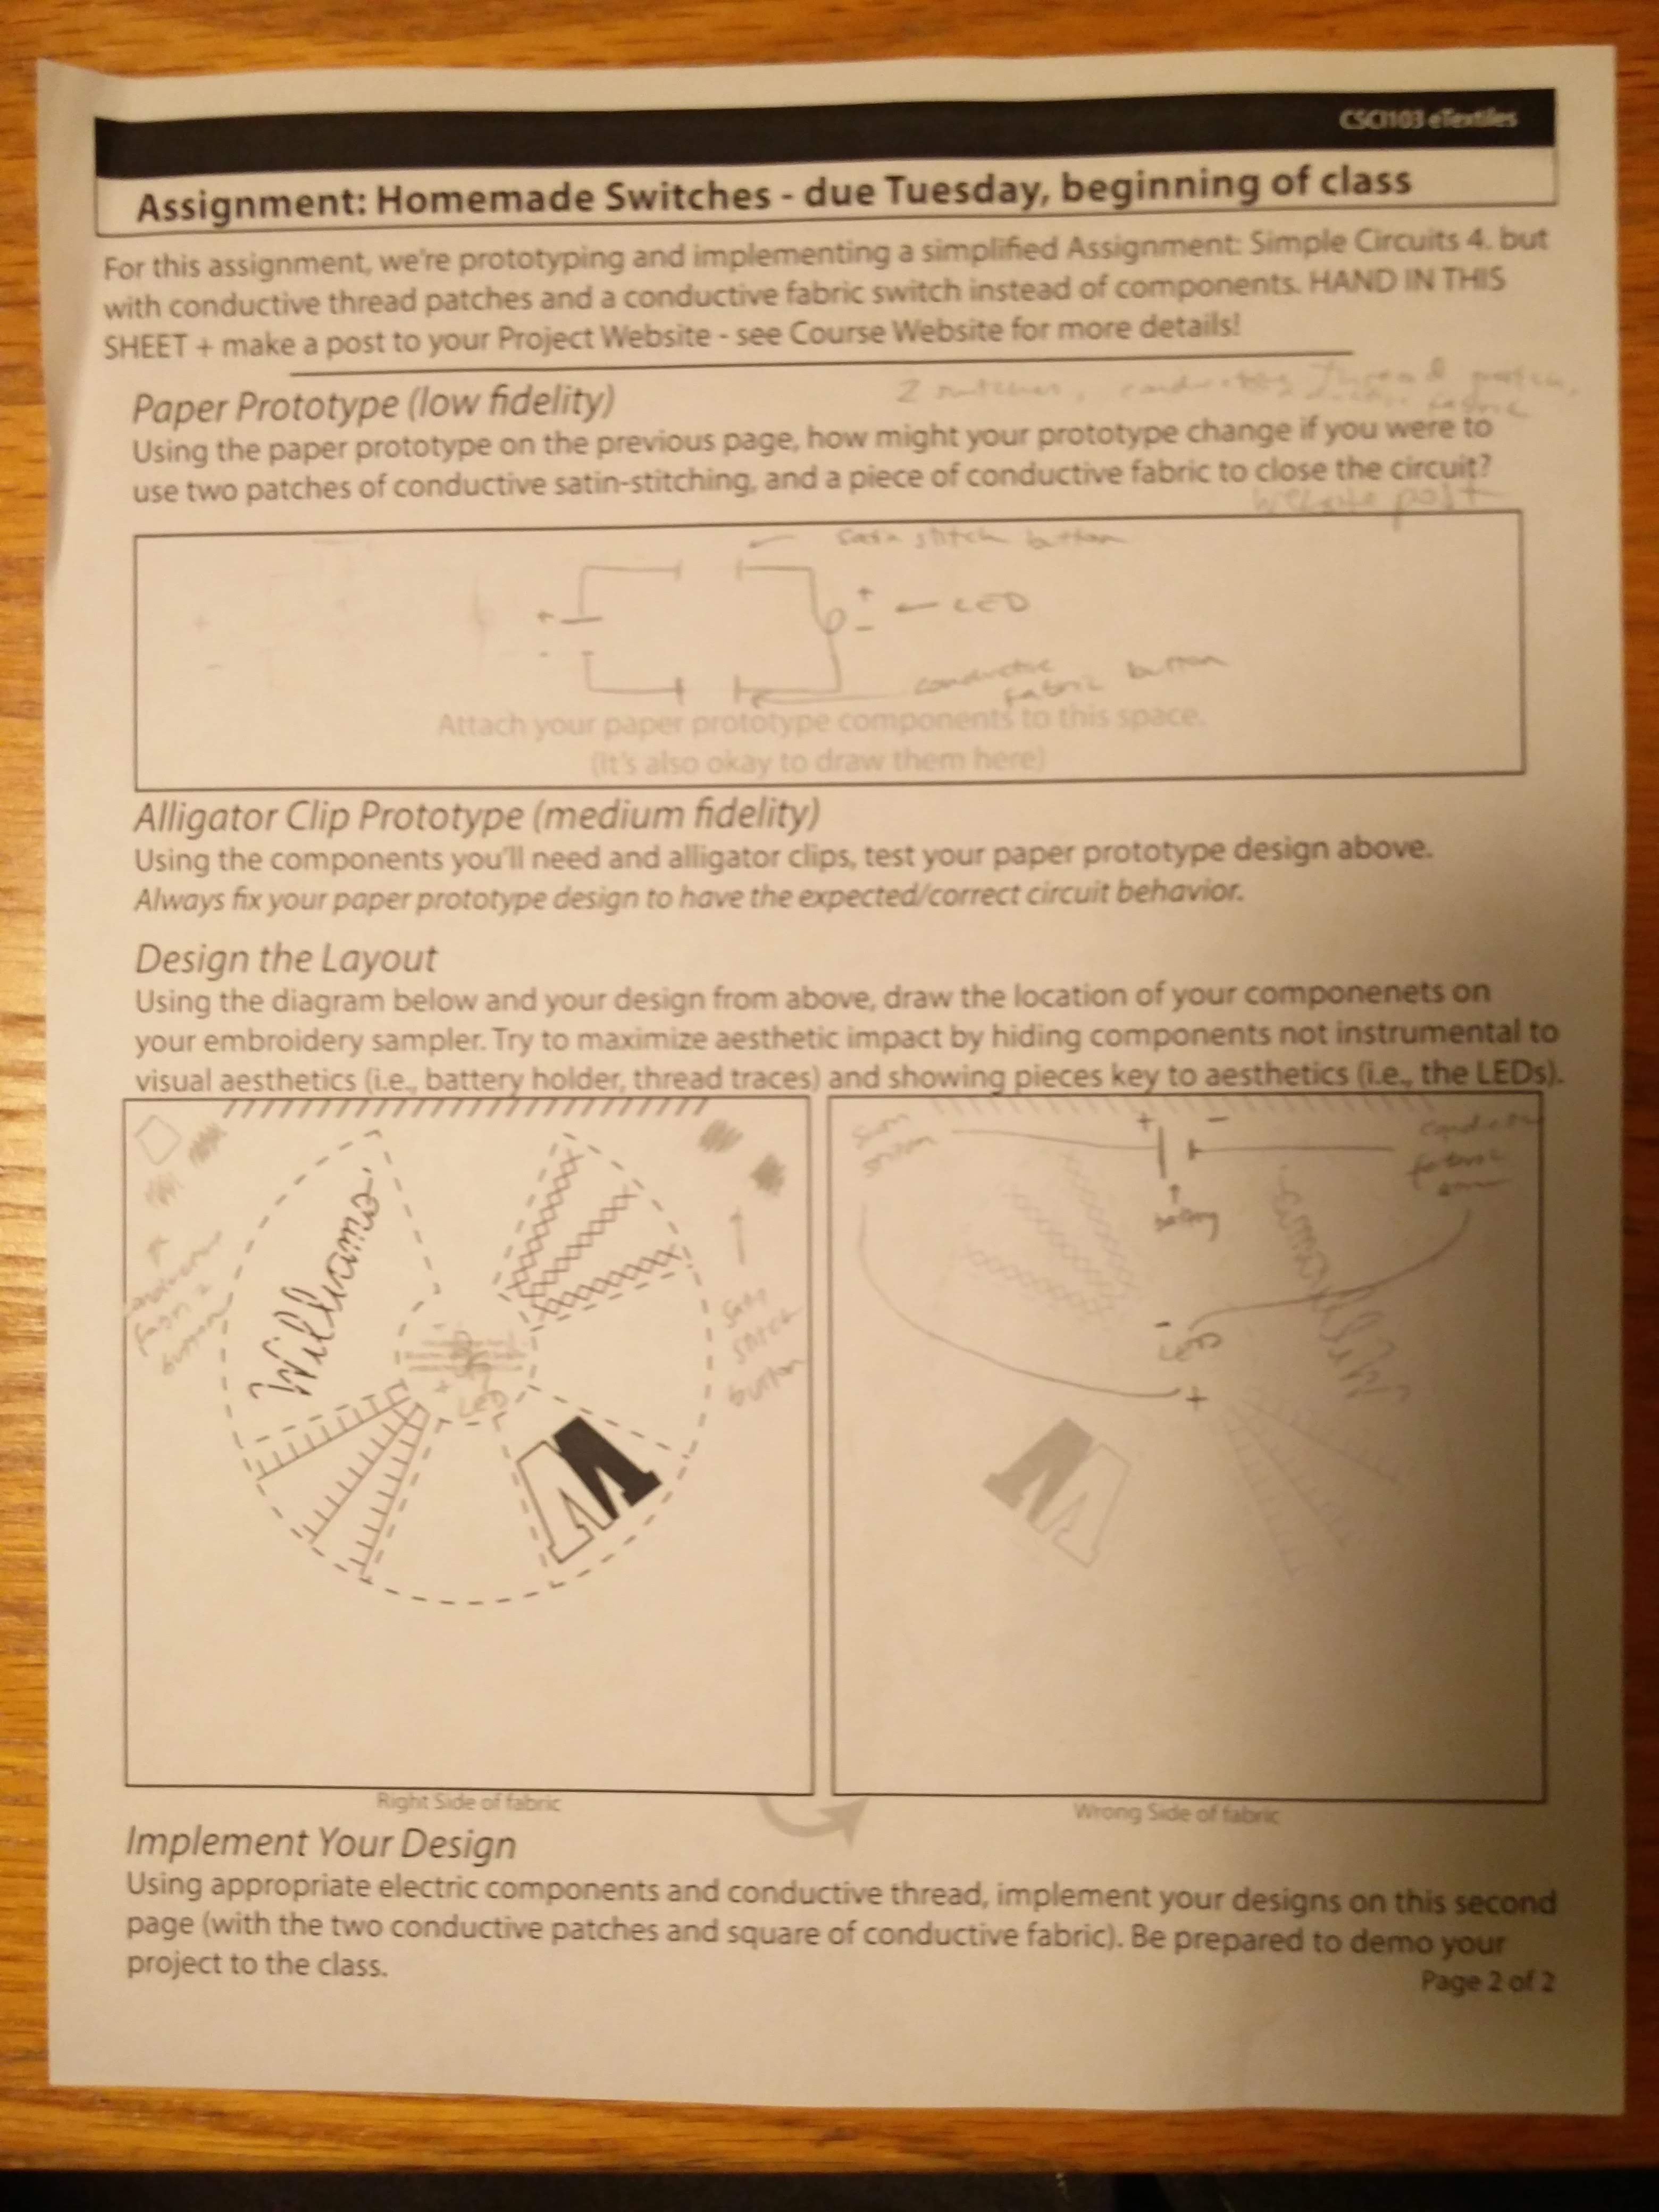 CSCI103 eTextiles
Assignment: Homemade Switches - due Tuesday, beginning of class
For this assignment, we're prototyping and implementing a simplified Assignment: Simple Circuits 4. but
with conductive thread patches and a conductive fabric switch instead of components. HAND IN THIS
SHEET + make a post to your Project Website - see Course Website for more details!
2 switches, thread patch,
fabric
Paper Prototype (low fidelity)
Using the paper prototype on the previous page, how might your prototype change if you were to
use two patches of conductive satin-stitching, and a piece of conductive fabric to close the circuit?
website post
satin stitch button
+ + LED
- -
conductive
fabric button
Attach your paper prototype components to this space.
(It's also okay to draw them here)
Alligator Clip Prototype (medium fidelity)
Using the components you'll need and alligator clips, test your paper prototype design above.
Always fix your paper prototype design to have the expected/correct circuit behavior.
Design the Layout
Using the diagram below and your design from above, draw the location of your componenets on
your embroidery sampler. Try to maximize aesthetic impact by hiding components not instrumental to
visual aesthetics (i.e., battery holder, thread traces) and showing pieces key to aesthetics (i.e., the LEDs).
Williams
+
LED
satin
stitch
button
W
Right Side of fabric
+ -
battery
fabric
Williams
-
LED
+
W
Wrong Side of fabric
Implement Your Design
Using appropriate electric components and conductive thread, implement your designs on this second
page (with the two conductive patches and square of conductive fabric). Be prepared to demo your
project to the class.
Page 2 of 2